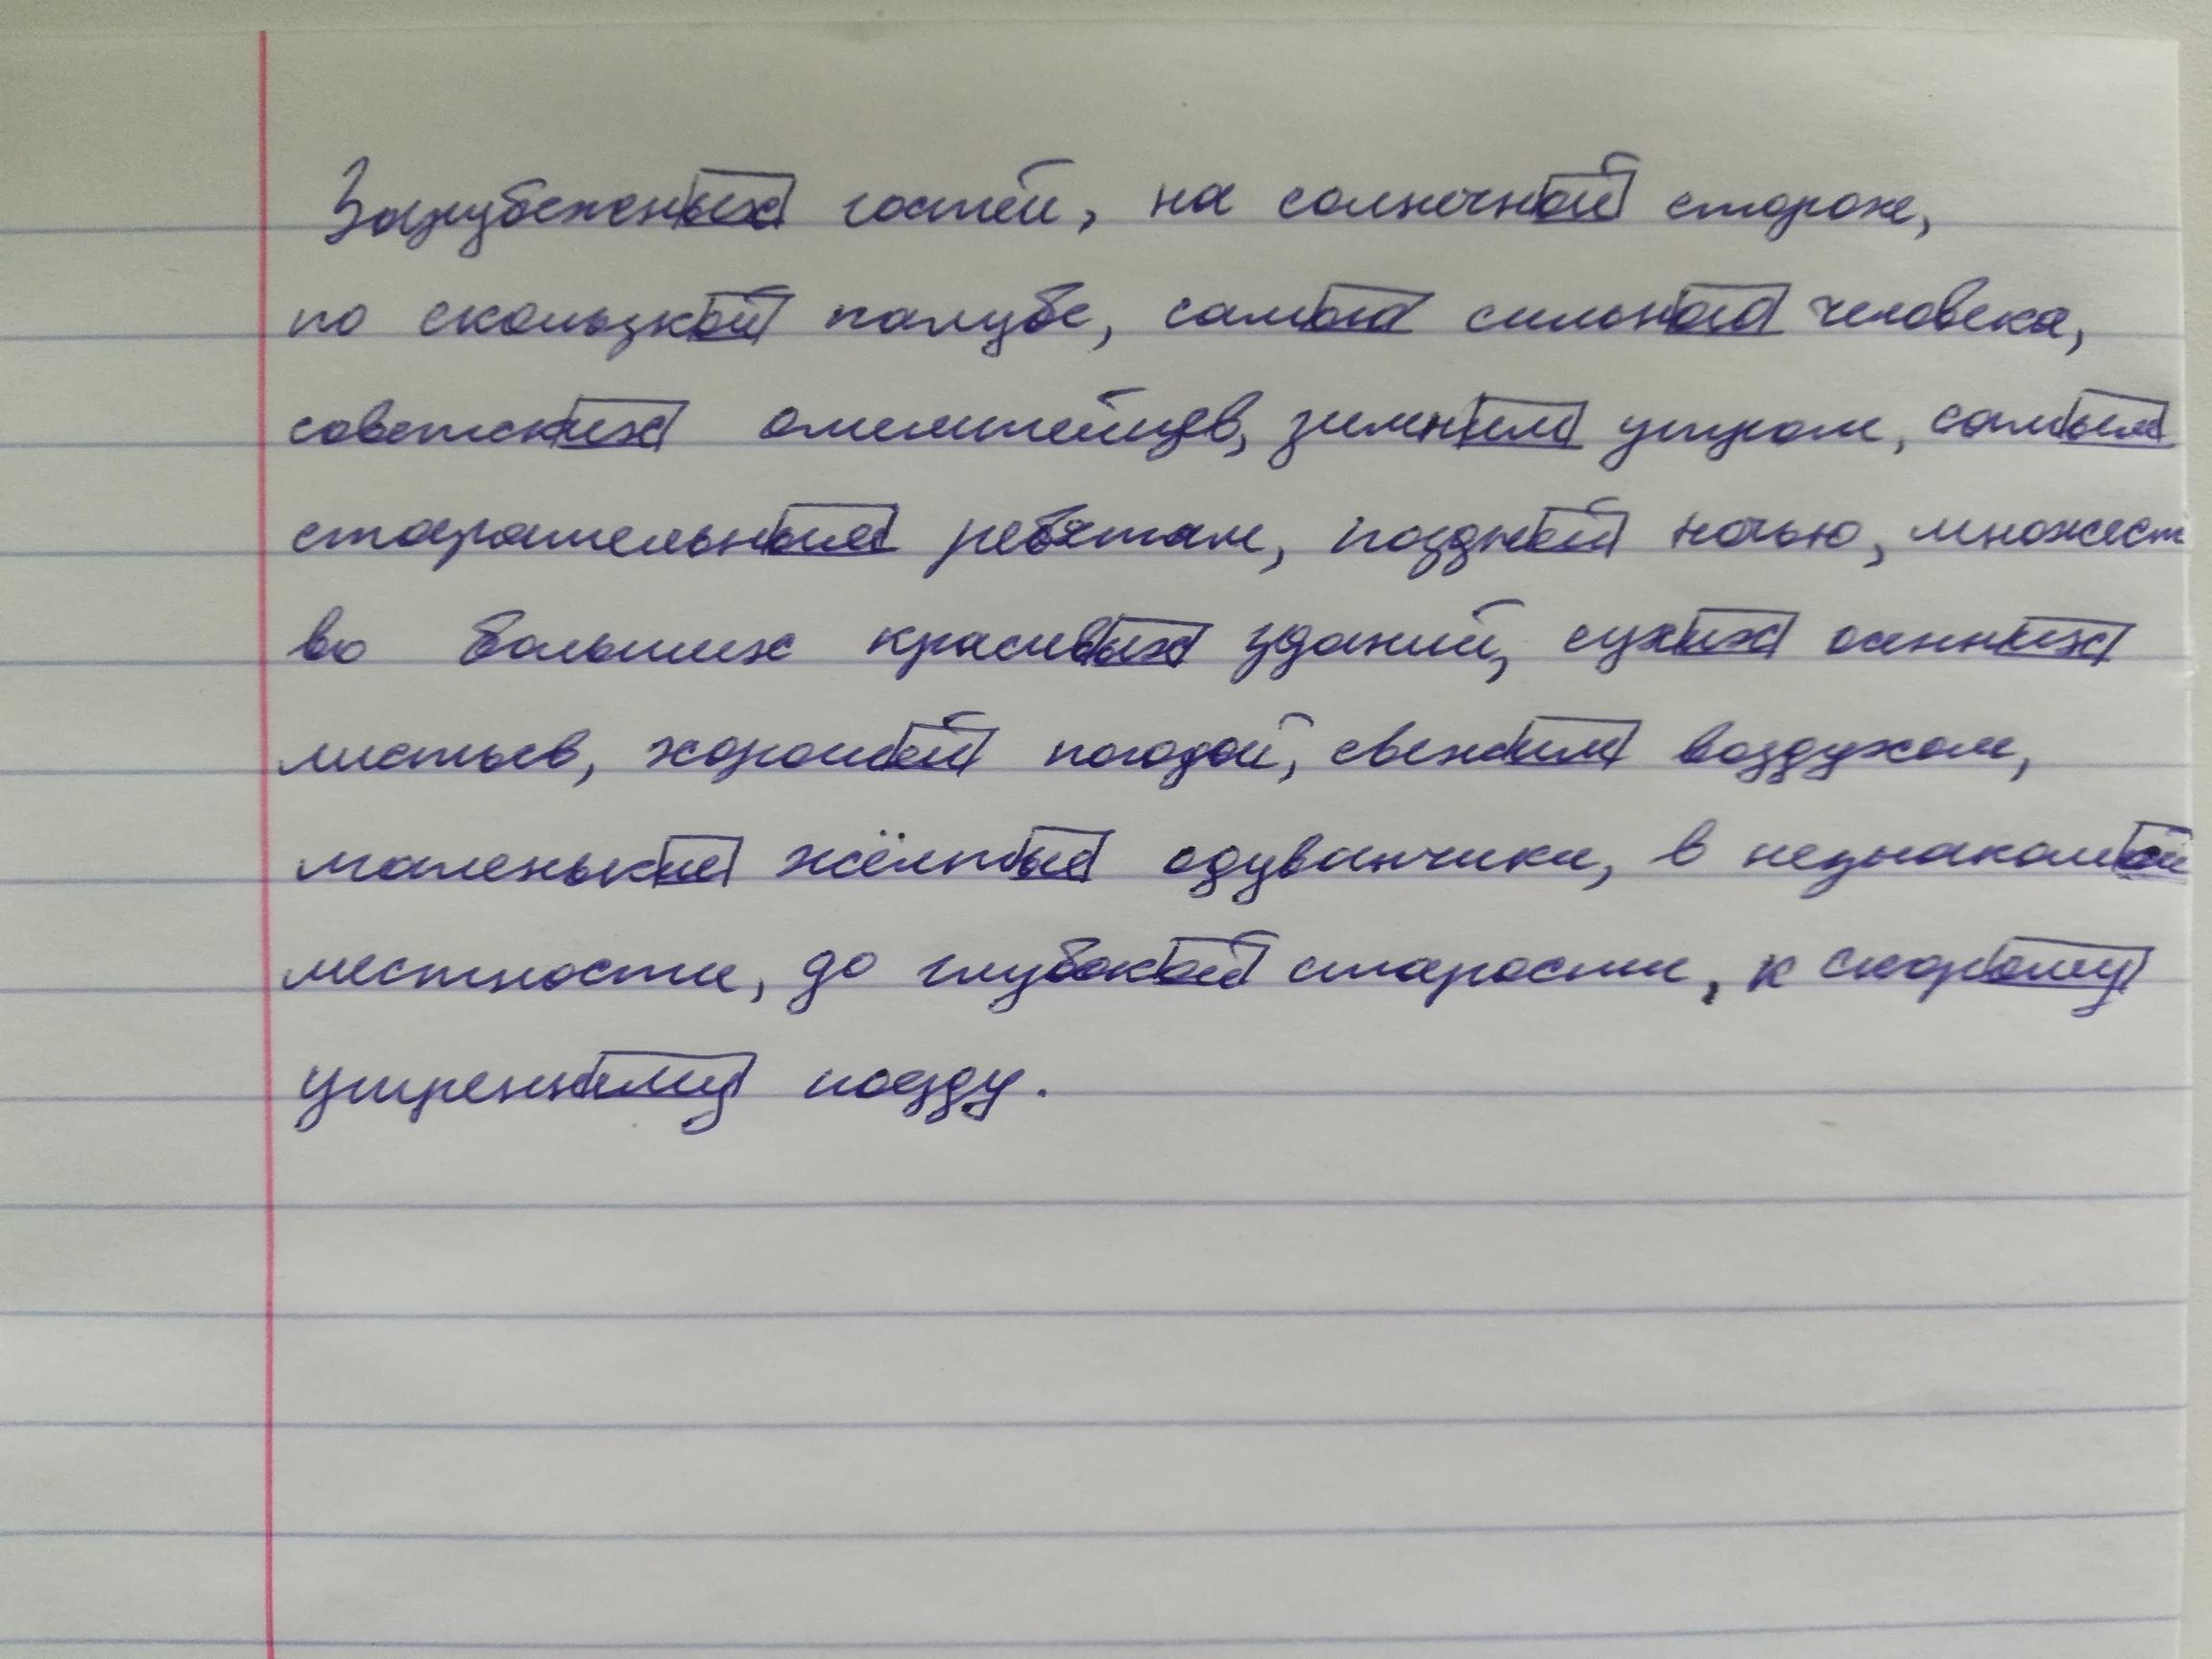 Зарубеженых гостей, на солнечной стороне,
по скользкой палубе, самого сильного человека,
советских олимпейцев, зимним утром, самым
старательным ребятам, поздней ночью, множест
во больших красивых зданий, сухих осенних
листьев, хорошей погодой, свежим воздухом,
маленькие жёлтые одуванчики, в незнакомой
местности, до глубокой старости, к скорому
утреннему поезду.